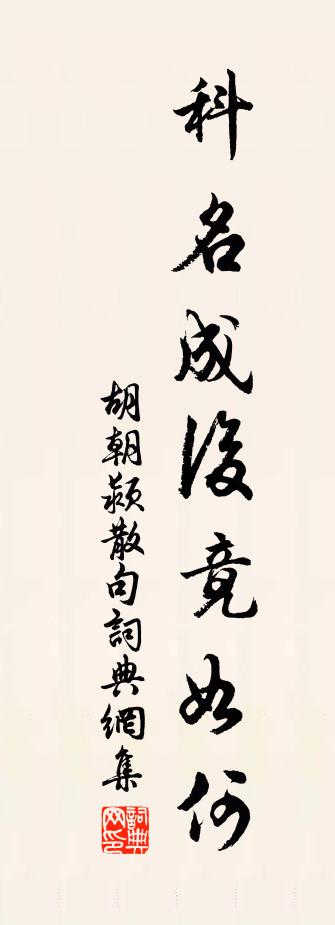 科名成後竟如何
胡朝颍散句詞典網集
詞典网印